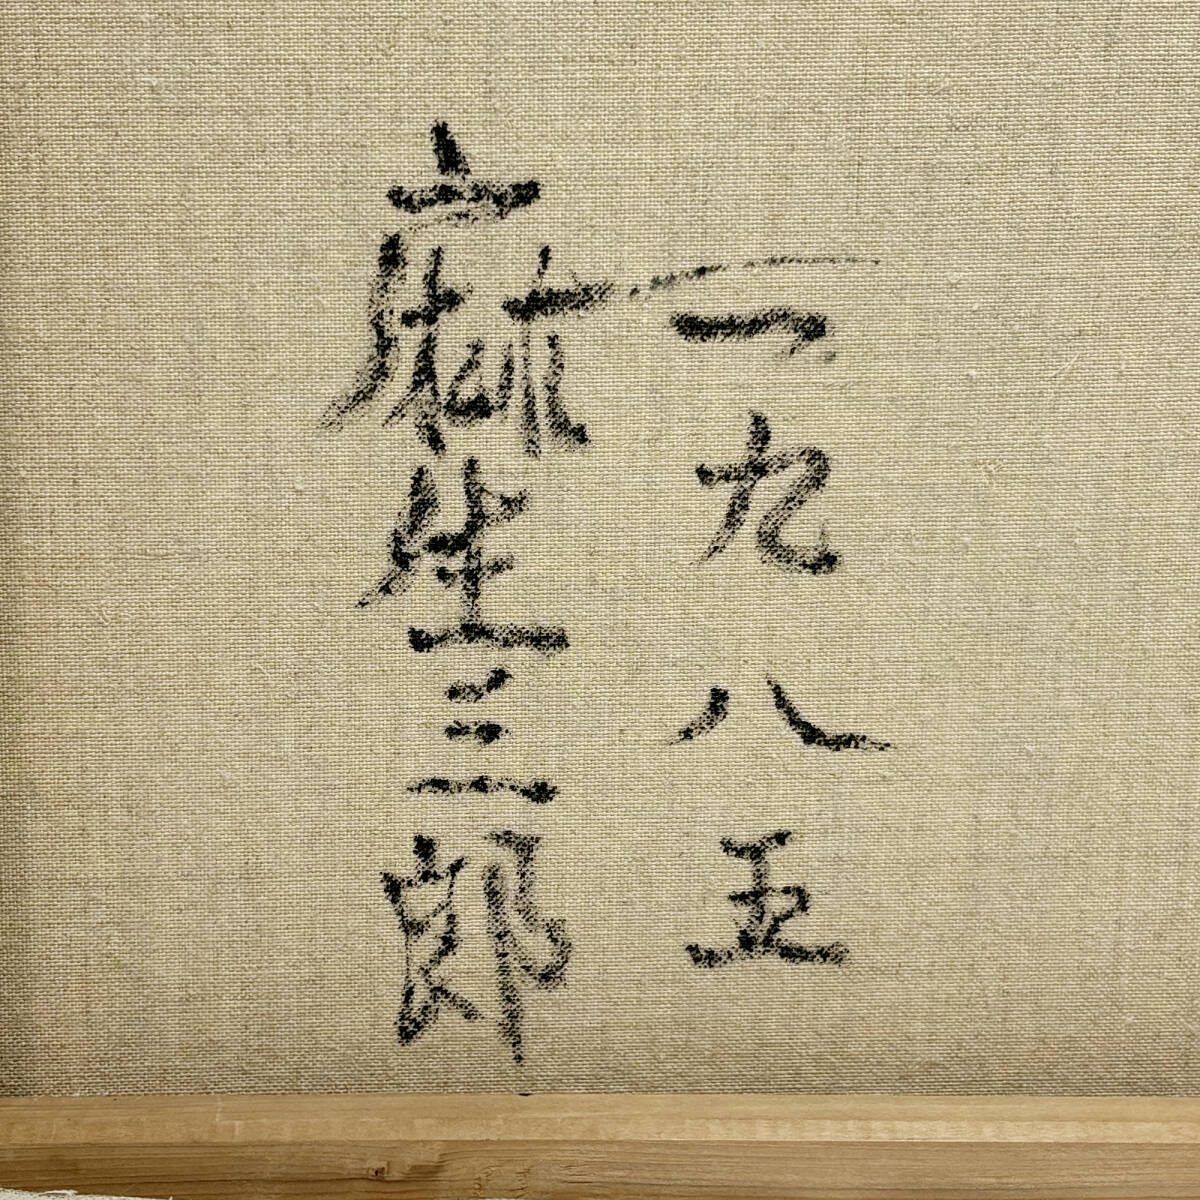 一九八五
麻生三郎